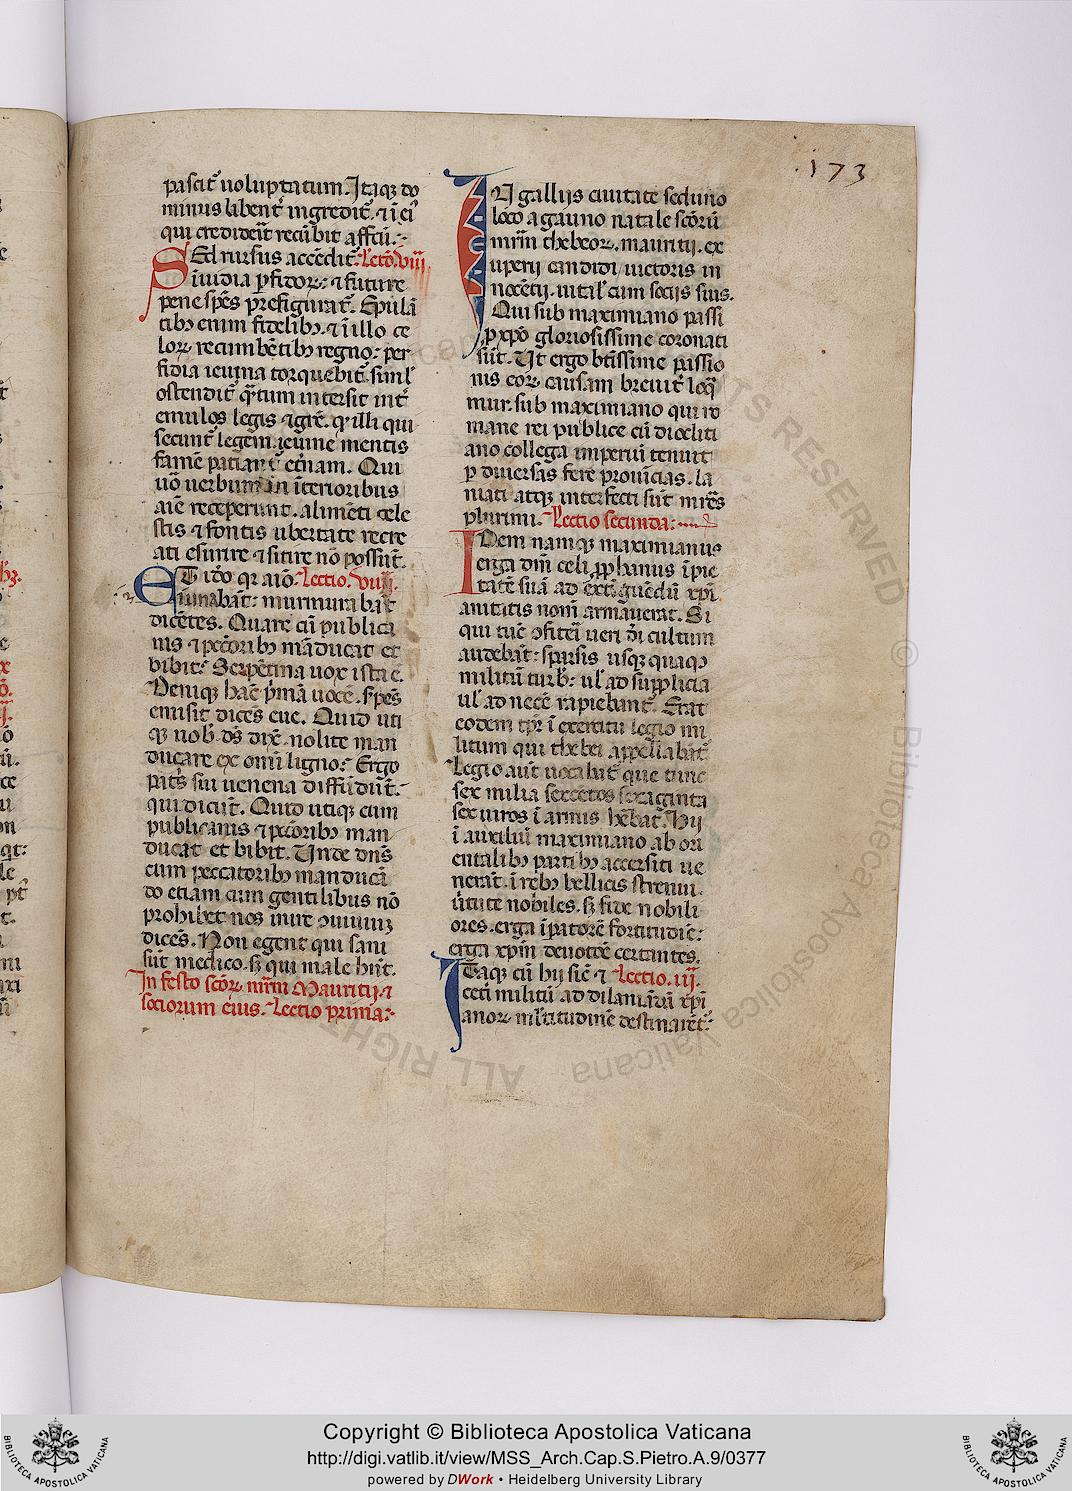 .173
pascit᷑ uoluptatum. Itaqȝ do
minus libent᷑ ingredit᷑. ⁊ ī eū
qui crediderīt recūbit affcū:·
Sed rursus accedit᷑. Lcō. viii
inuidia ꝑfidoꝝ: ⁊ future
pene spēs prefigurat᷑. Epulā
tibȝ enim fidelibȝ. ⁊ ī illo ce
loꝝ recumbētibȝ regno: per
fidia ieiuna torquebit᷑. siml᷑
ostendit᷑ qᷓtum intersit int᷑
emulos legis ⁊ grē. qꝛ illi qui
secunt᷑ legem. ieiune mentis
famē patiant᷑ et̄nam. Qui
uō uerbum in īterioribus
aīe receperunt. alimēti cele
stis ⁊ fontis ubertate recre
ati esurire ⁊ sitire nō possūt.
Et idō qꝛ aiō. Lectio. viiii.
ieiunabāt: murmurabāt
dicētes. Quare cū publica
nis ⁊ pccōribȝ māducat et
bibit: Serpētina uox ista ē.
Deniqȝ hāc pᷓmā uocē. sꝑēs
emisit dicēs eue. Quid uti
qȝ uob̄. ds̄ dix̄. nolite man
ducare ex omī ligno: Ergo
pat᷑s sui uenena diffūdūt.
qui dicūt. Quid utiqȝ cum
publicanis ⁊ pccōribȝ man
ducat et bibit. Unde dn̄s
cum peccatoribȝ manducā
do etiam cum gentilibus nō
prohibet nos inire ↄuiuiuȝ
dicēs. Non egent qui sani
sūt medico. sȝ qui male hn̄t.
In festo scōꝝ mr̄m Mauritij ⁊
sociorum eius. Lectio prima:·
In gallijs ciuitate seduno
loco agauno natale scōrū
mr̄m thebeoꝝ. mauritij. ex
uperij candidi uictoris in
nocētij. uital᷑ cum socijs suis.
Qui sub maximiano passi
ꝓ xp̄o gloriosissime coronati
sūt. Ut ergo btīssime passio
nis eoꝝ causam breuit᷑ loqᷓ
mur. sub maximiano qui ro
mane rei publice cū diocliti
ano collega imperium tenuit
ꝑ diuersas fere prouīcias. la
niati atqȝ interfecti sūt mr̄es
plurimi. Lectio secunda:
Idem namqȝ maximianus
erga dn̄i celi ꝓphanus īpie
tatē suā ad extīguēdū xp̄i
anitatis nom̄ armauerat. Si
qui tūc ↄfitēi ueri dī cultum
audebāt: sparsis usqȝquaqȝ
militū turb᷑: ul᷑ ad supplicia
ul᷑ ad necē rapiebant᷑. Erat
eodem tp̄r ī exercitu legio mi
litum qui thebei appellabāt᷑.
Legio aūt uocabat᷑ que tunc
sex milia sexcētos sexaginta
sex uiros ī armis hēbat. Hij
ī auxiliū maximiano ab ori
entalibȝ partibȝ accersiti ue
nerāt. ī rebȝ bellicis strenui.
ūtute nobiles. sȝ fide nobili
ores. erga īpatorē fortitudīe:
erga xp̄m deuotōe certantes.
Itaqȝ cū hij sic̄ ⁊ Lectio. iii.
ceti militū ad dilaniādā xp̄i
anoꝝ ml᷑titudinē destinarēt᷑.
Copyright © Biblioteca Apostolica Vaticana
http://digi.vatlib.it/view/MSS_Arch.Cap.S.Pietro.A.9/0377
powered by DWork • Heidelberg University Library
BIBLIOTECA APOSTOLICA VATICANA
BIBLIOTECA APOSTOLICA VATICANA